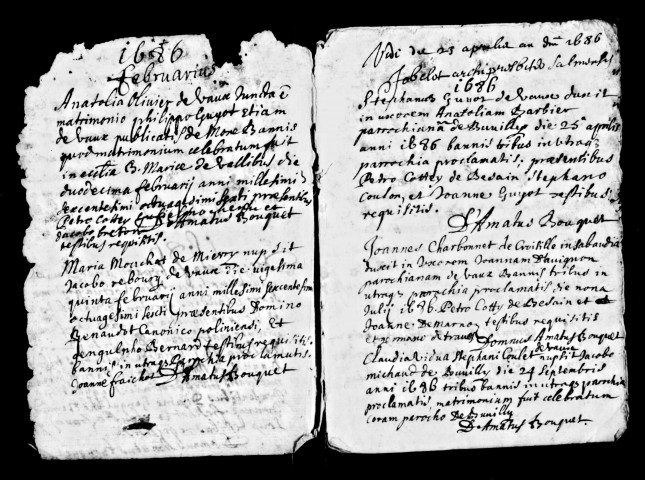 1686
februarius
Anatolia Olivier de vaux Juncta ē
matrimonio philippo Guyot Etiam
de vaux publicatis de More Bannis
quod matrimonium celebratum fuit
in ecclia B. Mariæ de vallibus die
duodecima februarij anni millesimi
sexcentesimi octuagesimi sexti præsentibus
Petro Cottey
Jacobo breton D. Amatus Bouquet
testibus requisitis.
Maria Mouchot de Mierry nupsit
Jacobo rebourg de vaux die vigesima
quinta februarij anni millesimi sexcentesimi
octuagesimi sexti præsentibus Domino
Renaudot Canonico poliniensi, Et
Gengulpho Bernard testibus requisitis.
bannis in utraq parochia proclamatis.
Joanne fraichot D. Amatus Bouquet
Vidi die 23 aprilis an dni 1686
Jobelot archipresbiter
1686
Stephanus Guyot de vaux duxit
in uxorem Anatoliam Barbier
parrochianā de Buvilly die 25ª aprilis
anni 1686 bannis tribus in utraq
parrochia proclamatis. præsentibus
Petro Cottey de Besain Stephano
Coulon, et Joanne Guyot testibus
requisitis.
D. Amatus Bouquet
Joannes Charbonnet de in sabaudia
duxit in uxorem Joannam Davignon
parochianam de vaux Bannis tribus in
utraq parrchia proclamatis die nona
Julij 1686 Petro Cotty de Besain et
Joanne Demarno, testibus requisitis
Domnus Amatus Bouquet
de vaux
Claudia Stephani Coulet nupsit Jacobo
michaud de Buvilly die 24 septembris
anni 1686 tribus bannis in utraq parochia
proclamatis matrimonium fuit celebratum
coram parocho De Buvilly
D. Amatus Bouquet.